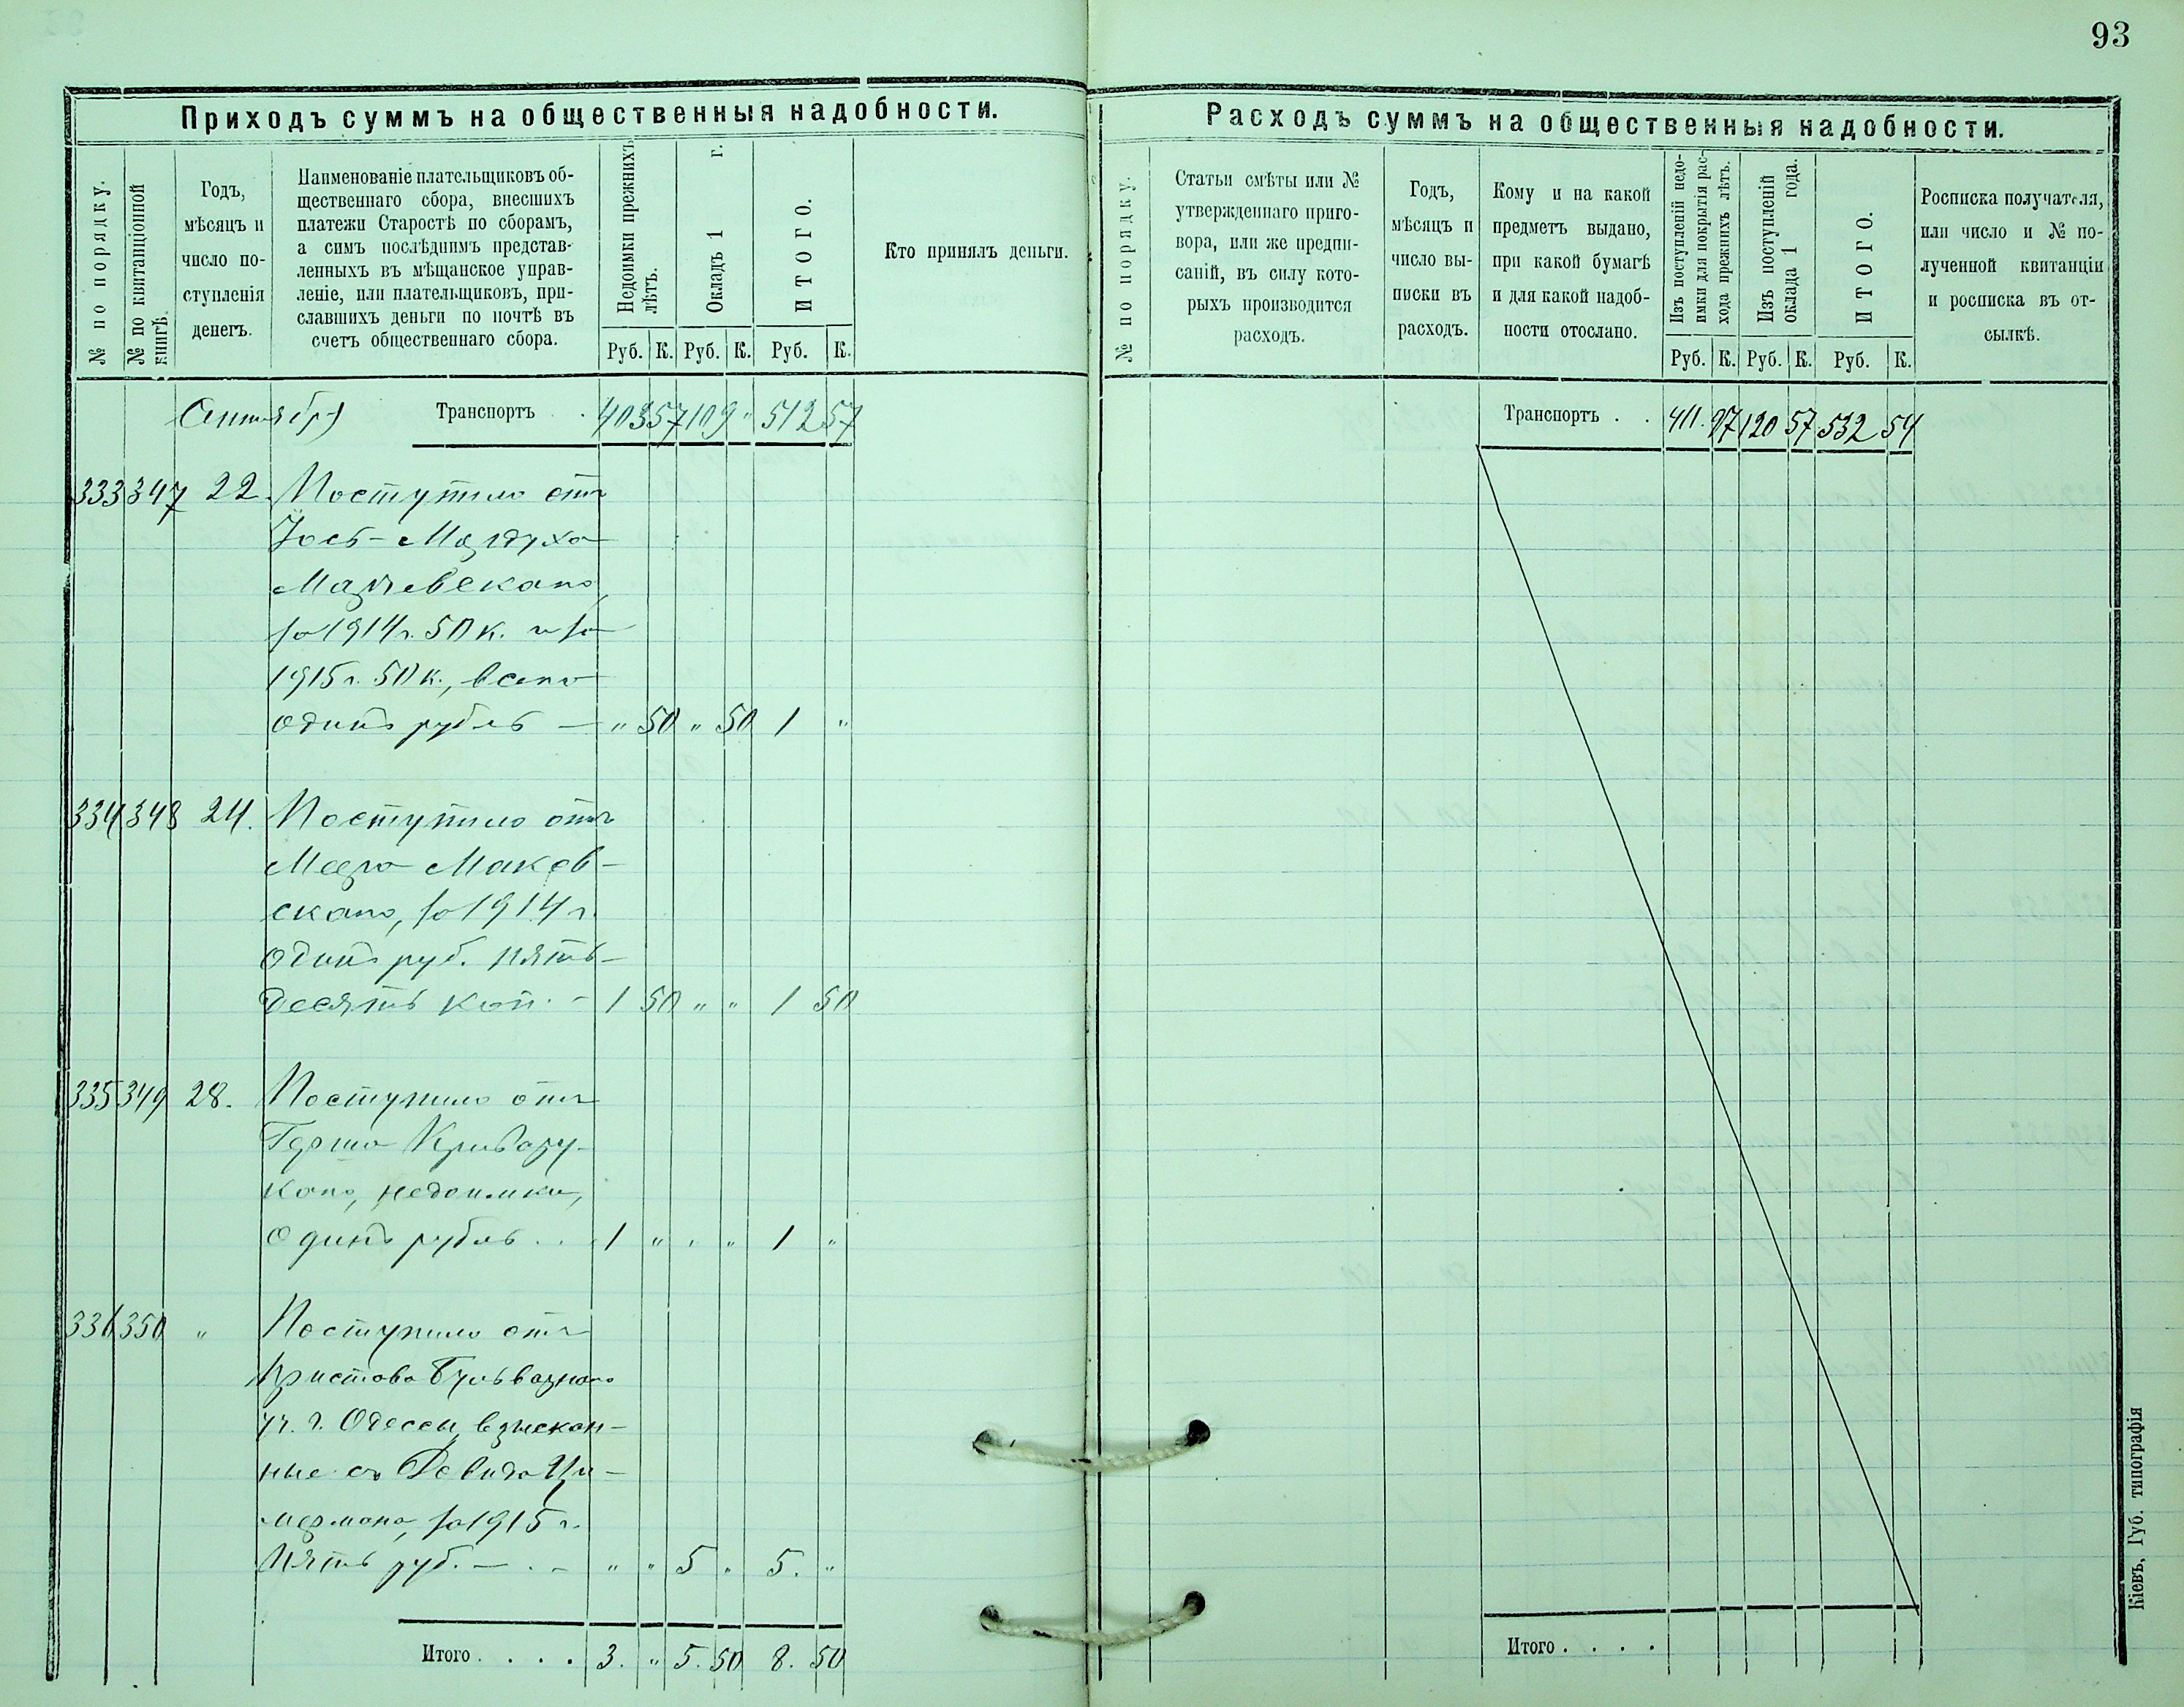 93
Приходъ суммъ на общественныя надобности.
№ по порядку.
№ по квитанціонной
книгѣ.
Годъ,
мѣсяцъ и
число по-
ступленія
денегъ.
Наименованіе плательщиковъ об-
щественнаго сбора, внесшихъ
платежи Старостѣ по сборамъ,
а симъ послѣднимъ представ-
ленныхъ въ мѣщанское управ-
леніе, или плательщиковъ, при-
славшихъ деньги по почтѣ въ
счетъ общественнаго сбора.
Недоимки прежнихъ
лѣтъ.
Окладъ 1 г.
ИТОГО.
Руб. К. Руб. К. Руб. К.
Кто принялъ деньги.
Сентябрь Транспортъ . 403 57 109 " 512 57
333 347 22. Поступило отъ
Іось-Мордуха
Макевскаго
за 1914 г. 50 к. и за
1915 г. 50 к., всего
одинъ рубль — " 50 " 50 1 "
334 348 24. Поступило отъ
Меера Маков-
скаго, за 1914 г.
одинъ руб. пять-
десятъ коп. - 1 50 " " 1 50
335 349 28. Поступило отъ
Герша Криваго-
каго, недоимки,
одинъ рубль . . 1 " " " 1 "
336 350 " Поступило отъ
Пристава Бульварнаго
уч. г. Одессы, взыскан-
ные съ Давида Ци-
мермана, за 1915 г.
Пять руб. — . - " " 5 " 5. "
Итого . . . . 3. " 5. 50 8. 50
Расходъ суммъ на общественныя надобности.
№ по порядку.
Статьи смѣты или №
утвержденнаго приго-
вора, или же предпи-
саній, въ силу кото-
рыхъ производится
расходъ.
Годъ,
мѣсяцъ и
число вы-
писки въ
расходъ.
Кому и на какой
предметъ выдано,
при какой бумагѣ
и для какой надоб-
ности отослано.
Изъ поступленій недо-
имки для покрытія рас-
хода прежнихъ лѣтъ.
Изъ поступленій
оклада 1 года.
ИТОГО.
Руб. К. Руб. К. Руб. К.
Росписка получателя,
или число и № по-
лученной квитанціи
и росписка въ от-
сылкѣ.
Транспортъ . . 411. 97 120 57 532 54
Итого . . . .
Кіевъ, Губ. типографія